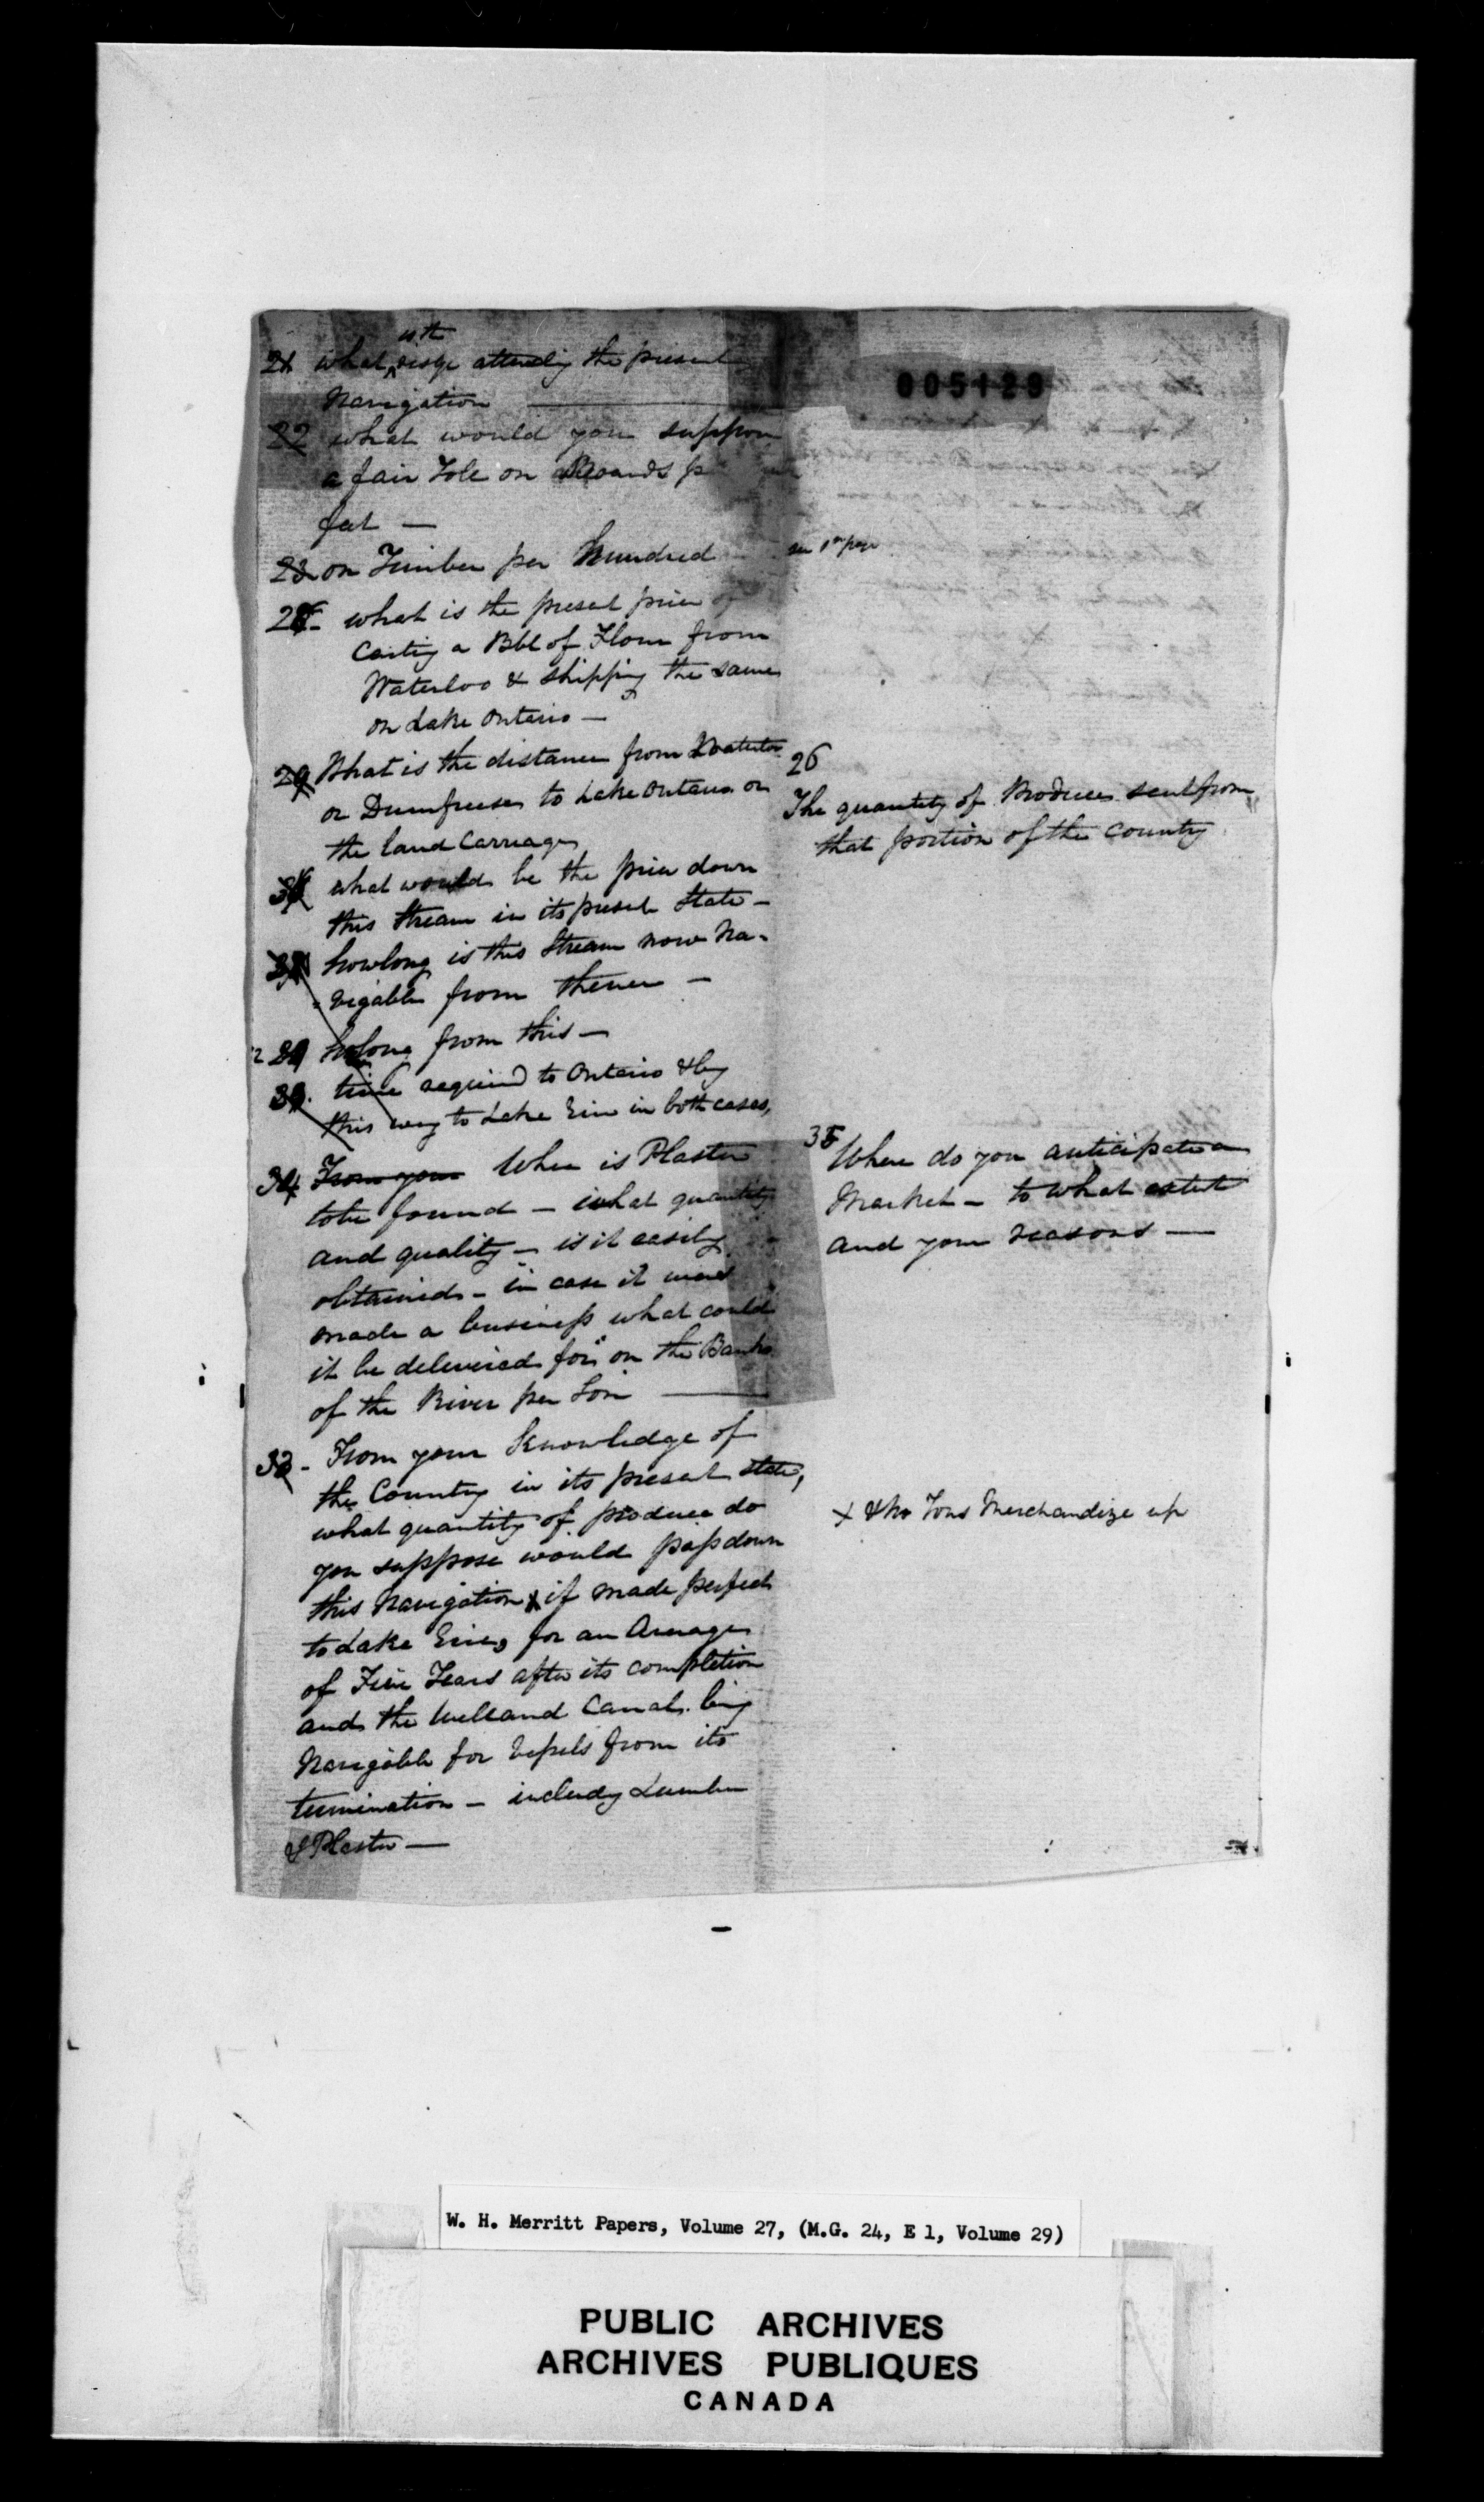 is the
21 what risque attending the present
Navigation
22 what would you suppose
a fair Tole on Boards p
feet —
23 on Timber per hundred
see 1st page
28 - what is the present price of
Carting a Bbl of Flour from
Waterloo & shipping the same
on Lake Ontario —
29 What is the distance from Waterloo
or Dumfrieses to Lake Ontario on
the land Carriage
what would be the price down
this Stream in its present State —
how long is this Stream now Na-
=vigable from thence —
from this —
33. time required to Ontario & by
this way to Lake Erie in both cases,
34 From your Where is Plaster
to be found — what quantity
and quality — is it easily
obtained — in case it were
made a business what could
it be delivered for on the Banks
of the River per Ton
33 - From your knowledge of
the Country in its present state,
what quantity of produce do
you suppose would pass down
this Navigation x if made perfect
to Lake Erie, for an Average
of Five Years after its completion
and the Welland Canal being
Navigable for Vessels from its
termination — including Lumber
& Plaster —
005129
26
The quantity of Produce sent from
that portion of the Country
35
Where do you anticipate a
Market — to what extent
and your reasons —
x & No Tons Merchandize up
W. H. Merritt Papers, Volume 27, (M.G. 24, E 1, Volume 29)
PUBLIC ARCHIVES
ARCHIVES PUBLIQUES
CANADA